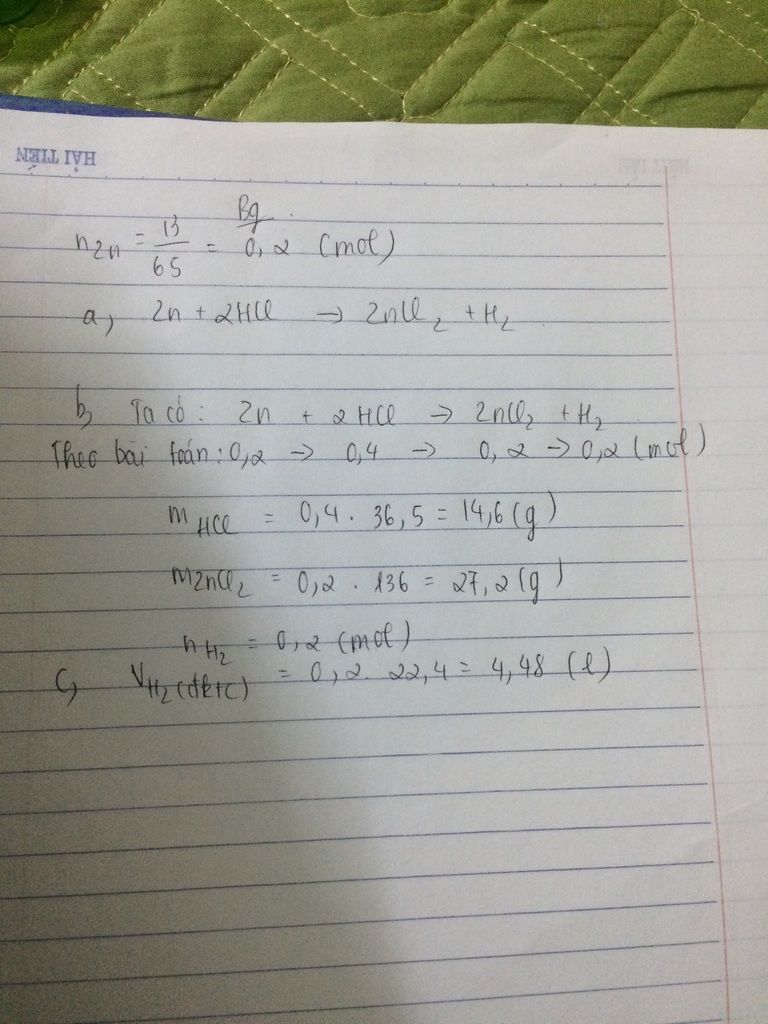 HẢI TIẾN
Bg
nZn = 13/65 = 0,2 (mol)
a, Zn + 2HCl → ZnCl2 + H2
b, Ta có: Zn + 2HCl → ZnCl2 + H2
Theo bài toán: 0,2 → 0,4 → 0,2 → 0,2 (mol)
mHCl = 0,4 . 36,5 = 14,6 (g)
mZnCl2 = 0,2 . 136 = 27,2 (g)
nH2 = 0,2 (mol)
c, VH2(đktc) = 0,2 . 22,4 = 4,48 (l)